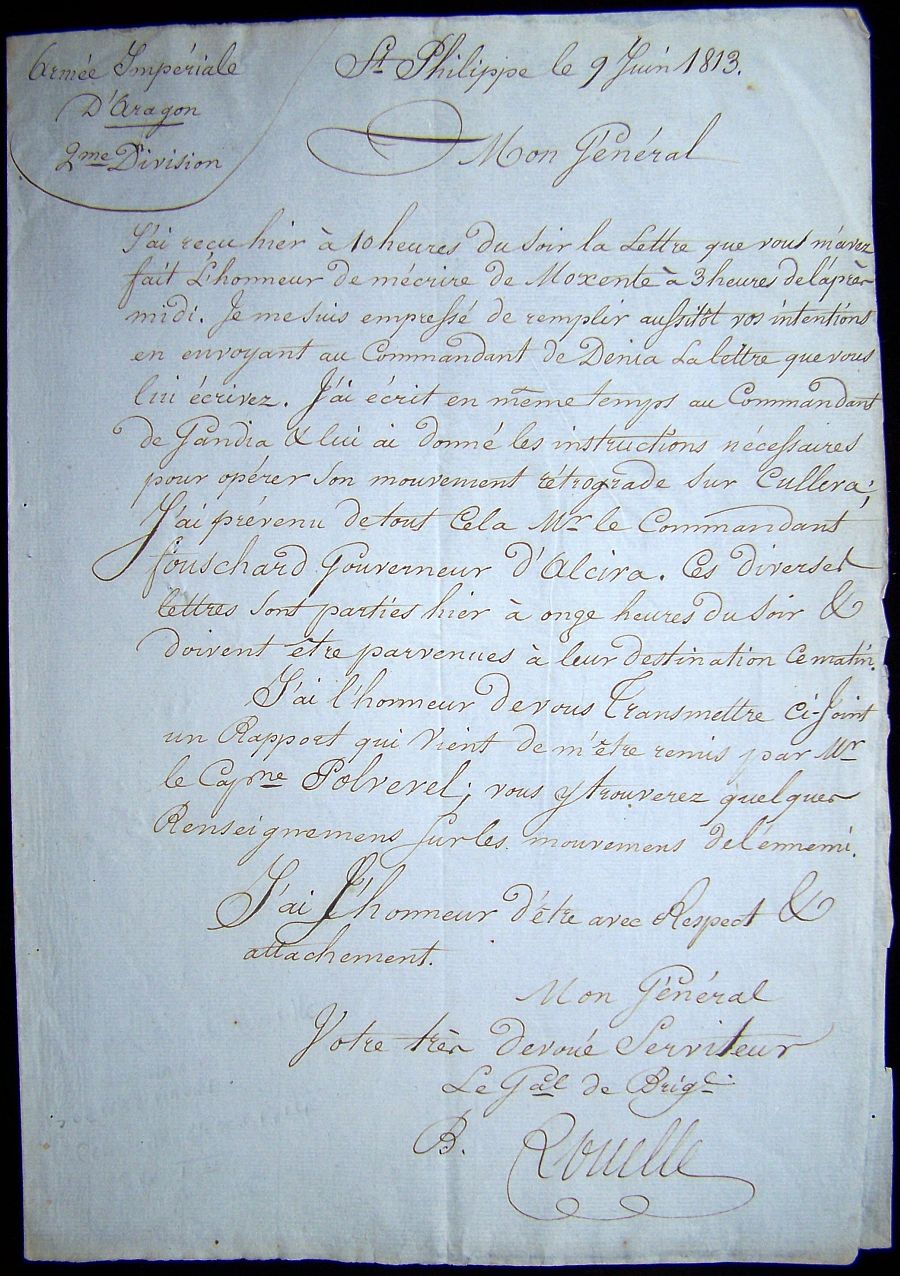 Armée Impériale
D'Aragon
2me Division
St Philippe le 9 Juin 1813.
Mon Général
J'ai reçu hier à 10 heures du soir la Lettre que vous m'avez
fait L'honneur de m'écrire de Moxente à 3 heures de l'après
midi. Je me suis empressé de remplir aussitôt vos intentions
en envoyant au Commandant de Denia La lettre que vous
lui écrivez. J'ai écrit en même temps au Commandant
de Gandia & lui ai donné les instructions nécessaires
pour opérer son mouvement rétrograde sur Cullera;
J'ai prévenu de tout cela Mr le Commandant
fouschard Gouverneur d'Alcira. Ces diverses
lettres sont parties hier à onze heures du soir &
doivent être parvenues à leur destination ce matin.
J'ai l'honneur de vous Transmettre ci-Joint
un Rapport qui vient de m'être remis par Mr
le Capne Polverel; vous y trouverez quelques
Renseignemens sur les mouvemens de l'énnemi.
J'ai L'honneur d'être avec Respect &
attachement.
Mon Général
Votre très devoué Serviteur
Le Gal de Brige
B. Rouelle